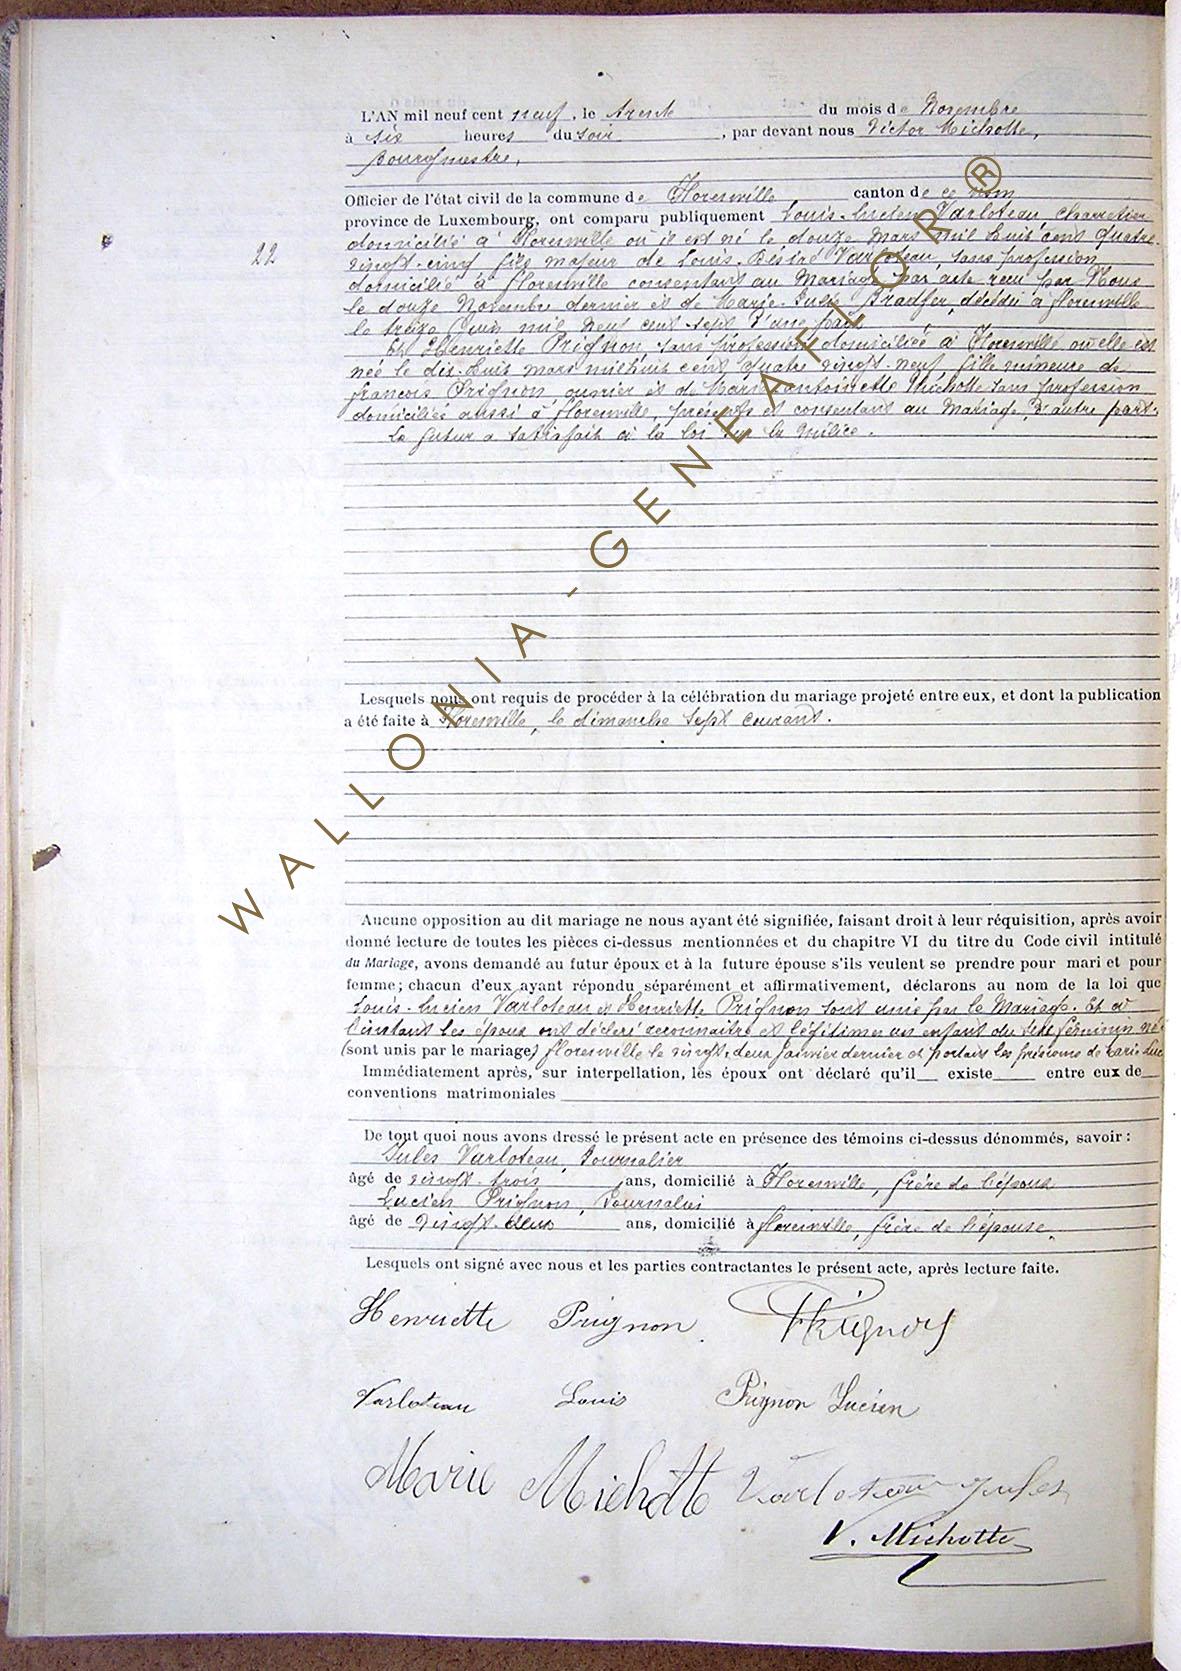 L'AN mil neuf cent neuf, le trente du mois de Novembre
à six heures du soir, par devant nous Victor Michotte,
Bourgmestre,
Officier de l'état civil de la commune de Florenville canton de ce nom
province de Luxembourg, ont comparu publiquement Louis-Lucien Varloteau, charretier
domicilié à Florenville où il est né le douze Mars mil huit cent quatre-
22
vingt-cinq fils majeur de Louis-Désiré Varloteau, sans profession
domicilié à Florenville consentant au Mariage par acte reçu par Nous
le douze Novembre dernier et de Marie-Julie Bradfer, décédée à Florenville
le treize Juin mil neuf cent sept d'une part
Et Henriette Prignon sans profession domiciliée à Florenville où elle est
née le dix-huit mars mil huit cent quatre vingt-neuf fille mineure de
François Prignon, ouvrier et de Marie-antoinette Michotte sans profession
domiciliés aussi à Florenville, présents et consentant au Mariage, d'autre part.
Le futur a satisfait à la loi sur la milice.
Lesquels nous ont requis de procéder à la célébration du mariage projeté entre eux, et dont la publication
a été faite à Florenville, le dimanche sept courant.
Aucune opposition au dit mariage ne nous ayant été signifiée, faisant droit à leur réquisition, après avoir
donné lecture de toutes les pièces ci-dessus mentionnées et du chapitre VI du titre du Code civil intitulé
du Mariage, avons demandé au futur époux et à la future épouse s'ils veulent se prendre pour mari et pour
femme; chacun d'eux ayant répondu séparément et affirmativement, déclarons au nom de la loi que
Louis-Lucien Varloteau et Henriette Prignon sont unis par le Mariage. Et à
l'instant les époux ont déclaré reconnaitre et légitimer un enfant du sexe féminin né
(sont unis par le mariage) Florenville le vingt-deux Janvier dernier et portant les prénoms de Marie Luc
Immédiatement après, sur interpellation, les époux ont déclaré qu'il existe entre eux de
conventions matrimoniales
De tout quoi nous avons dressé le présent acte en présence des témoins ci-dessus dénommés, savoir :
Jules Varloteau, Journalier
âgé de vingt-trois ans, domicilié à Florenville, frère de l'époux
Lucien Prignon, Journalier
âgé de vingt-deux ans, domicilié à Florenville, frère de l'épouse.
Lesquels ont signé avec nous et les parties contractantes le présent acte, après lecture faite.
Henriette Prignon. FPrignon
Varloteau Louis Prignon Lucien
Marie Michotte Varloteau Jules
V. Michotte
WALLONIA-GENEAFLOR®